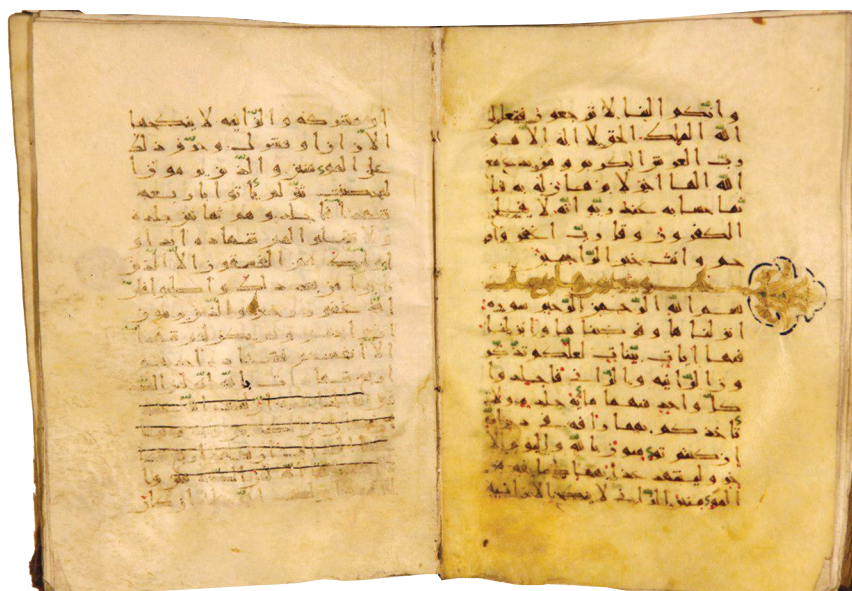 وانكم الينا لا ترجعون فتعلى
الله الملك الحق لا اله الا هو
رب العرش الكريم ومن يدع مع
الله الها اخر لا برهان له به فا
نما حسابه عند ربه انه لا يفلح
الكفرون وقل رب اغفر وار
حم وانت خير الراحمين
بسم الله الرحمن الرحيم سورة
انزلناها وفرضناها وانزلنا
فيها ايات بينات لعلكم تذكر
ون الزانيه والزانى فاجلدوا
كل واحد منهما مأيه جلده ولا
تأخذكم بهما رافه فى دين الله
ان كنتم تومنون بالله واليوم الا
خر وليشهد عذابهما طايفه من
المومنين الزانى لا ينكح الا زانيه
او مشركه والزانيه لا ينكحها
الا زان او مشرك وحرم ذلك
على المومنين والذين يرمون ا
لمحصنت ثم لم يأتوا باربعه
شهدا فاجلدوهم ثمانين جلده
ولا تقبلوا لهم شهاده ابدا و
اوليك هم الفسقون الا الذين
تابوا من بعد ذلك واصلحوا فان
الله غفور رحيم والذين يرمون
ازواجهم ولم يكن لهم شهدا
الا انفسهم فشهاده احدهم
اربع شهادات بالله انه لمن الصد